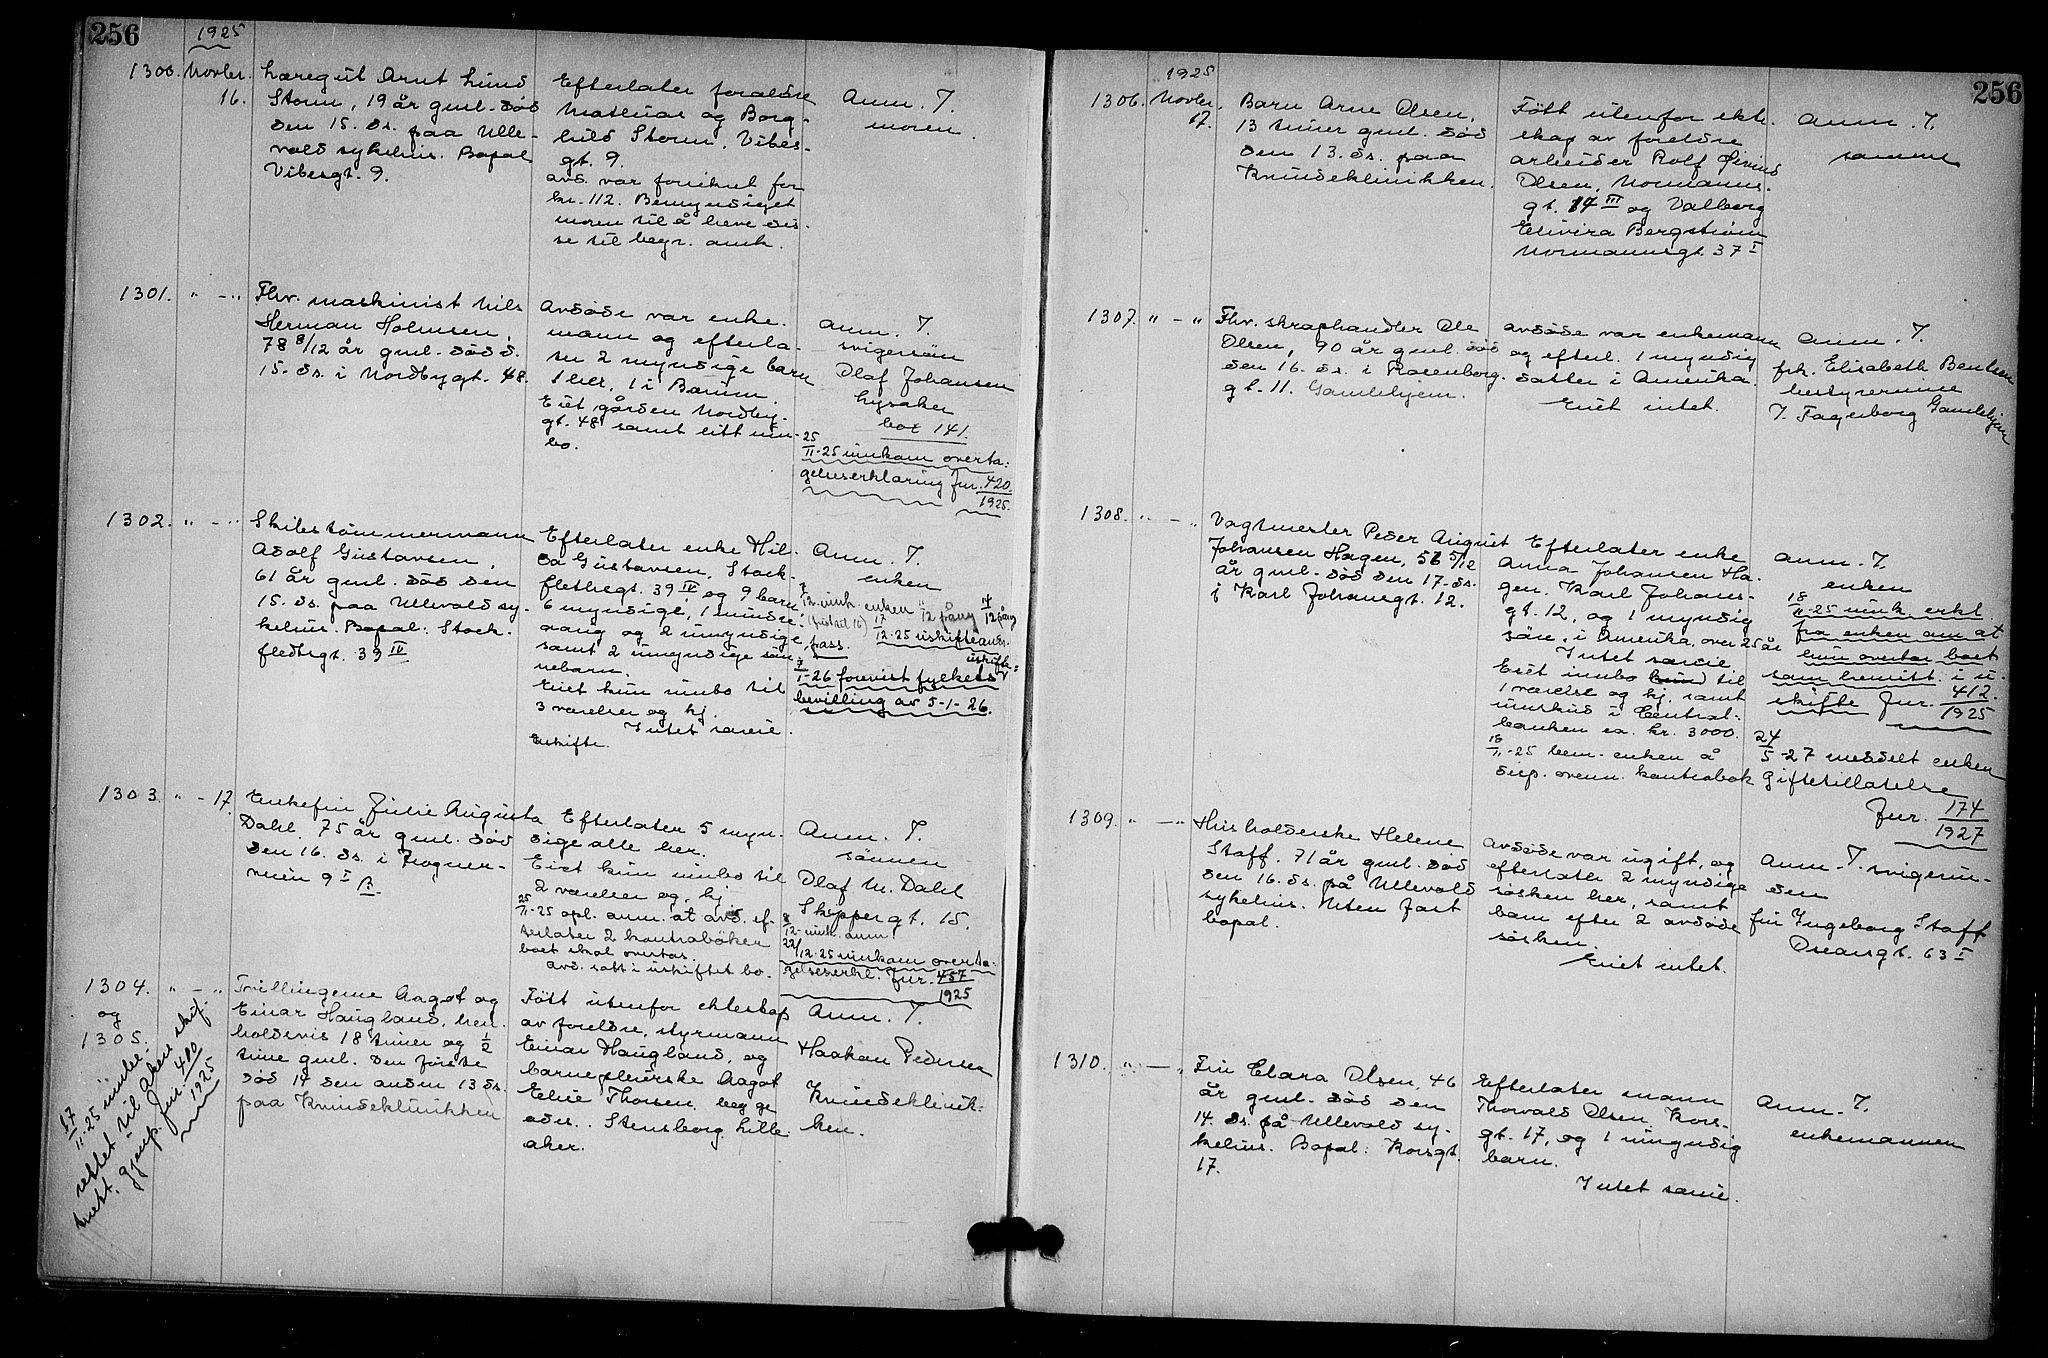 256
1925
1300. Novbr.
16.
Læregut Arnt Lund
Storm, 19 år gml. död
den 15. ds. paa Ulle-
vold sykehus. Bopal
Vibesgt. 9.
Efterlater foraldre
Matheus og Borg-
hild Storm, Vibes-
gt. 9.
avd. var forsikret for
kr. 112. Bemyndiget
moren til å heve dis-
se til begr. omk.
Anm. T.
moren
1301. " - "
Fhv. maskinist Nils
Herman Holmsen,
78 8/12 år gml. död d.
15. ds. i Nordbygt. 48.
Avdöde var enke-
mann og efterla-
ter 2 myndige barn
1 her, 1 i Bærum.
Eiet gården Nordby-
gt. 48 samt litt inn-
bo.
Anm. T.
svigersön
Olaf Johansen
Lysaker
box 141.
25/11-25 innkom overta-
gelseserklæring jnr. 420/1925.
1302. " - "
Skibstömmermann
Adolf Gustavsen,
61 år gml. död den
15. ds. paa Ullevold sy-
kehus. Bopal: Stock-
fledtsgt. 39 IV
Efterlater enke Hil-
da Gustavsen, Stock-
flethsgt. 39 IV og 9 barn
6 myndige, 1 mindre-
aarig og 2 umyndige
samt 2 umyndige sön-
nebarn.
Eiet kun innbo til
3 værelser og kj.
Intet særeie.
Uskifte.
Anm. T.
enken
12. innk. enken
pass.
17/12-25 uskifteandr.
7/1-26 forevist fylkets uskifte-
bevilling av 5-1-26.
1303. " - 17.
Enkefru Julie Augusta
Dahl, 75 år gml. död
den 16. ds. i Frogner-
veien 9 I B.
Efterlater 5 myn-
dige alle her.
Eiet kun innbo til
2 værelser og kj.
25/11-25 opl. anm. at avd. ef-
terlater 2 kontraböker
boet skal overtas.
avd. satt i uskiftet bo.
Anm. T.
sönnen
Olaf M. Dahl
Skippergt. 15.
8/12 - innk. anm.
22/12-25 innkom overta-
gelseserkl. jnr. 457/1925
1304. " - "
og
1305.
Tvillingerne Aagot og
Einar Haugland, hen-
holdsvis 18 timer og 1/2
time gml. Den förste
död 14 den anden 13 ds.
paa Kvindeklinikken
Född utenfor ekteskap
av foreldre, styrmann
Einar Haugland, og
barnepleierske Aagot
Eline Thorsen, begge
adr. Stensborg, Lille-
aker.
Anm. T.
Haakon Pedersen
Kvindeklinik-
ken.
27/11-25 innber.
rettet til Aker skif-
terett. gjenp. jnr. 400/1925
256
1925
1306. Novbr.
17.
Barn Arne Olsen,
13 timer gml. död
den 13. ds. paa
Kvindeklinikken.
Född utenfor ekte-
skap av foreldre
arbeider Rolf Öivind
Olsen, Normanns-
gt. 14 III og Valborg
Elvira Bergström
Normannsgt. 37 I
Anm. T.
samme
1307. " - "
Fhv. skraphandler Ole
Olsen, 90 år gml. död
den 16. ds. i Rosenborg-
gt. 11. Gamlehjem.
avdöde var enkemann
og efterl. 1 myndig
datter i Amerika.
Eiet intet.
Anm. T.
frk. Elisabeth Bentsen
bestyrerinne
f. Fagerborg Gamlehjem
1308. " - "
Vagtmester Peder August
Johansen Hagen, 56 5/12
år gml. död den 17. ds.
i Karl Johansgt. 12.
Efterlater enke
Anna Johansen Ha-
gen, Karl Johans-
gt. 12, og 1 myndig
sön, i Amerika, over 25 år
Intet særeie.
Eiet innbo kund til
1 værelse og kj. samt
innskud i Central-
banken ca. kr. 3000.
18/11-25 bem. enken å
disp. ovenn. kontrabok
Anm. T.
enken
18/11-25 innk. erkl.
fra enken om at
hun overtar boet
som hensitt. i u-
skifte jnr. 412/1925
24/5-27 meddelt enken
giftetillatelse
jnr. 174/1927
1309. " - "
Husholderske Helene
Staff, 71 år gml. död
den 16. ds. på Ullevold
sykehus. Uten fast
bopal.
Avdöde var ugift, og
efterlater 2 myndige
sösken her, samt
barn efter 2 avdöde
sösken.
Eiet intet.
Anm. T. svigerin-
den
fru Ingeborg Staff
Dronsgt. 63 I
1310. " - "
Fru Clara Olsen, 46
år gml. död den
14. ds. på Ullevold sy-
kehus. Bopal: Korsgt.
17.
Efterlater mann
Thorvald Olsen, Kors-
gt. 17, og 1 umyndig
barn.
Intet særeie.
Anm. T.
enkemannen